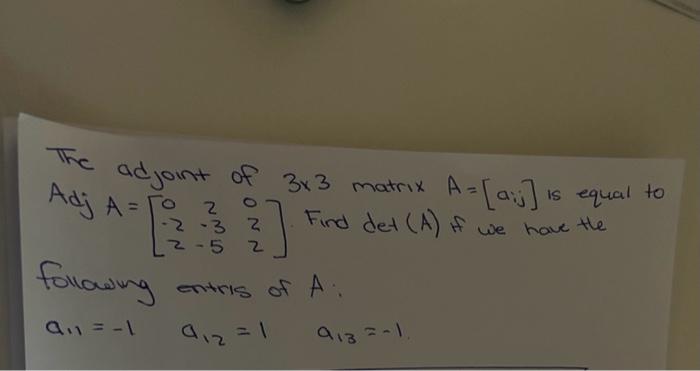 The adjoint of 3x3 matrix A = [aij] is equal to
Adj A = [0 2 0
-2 -3 2
2 -5 2]. Find det (A) if we have the
following entris of A:
a11 = -1 a12 = 1 a13 = -1.